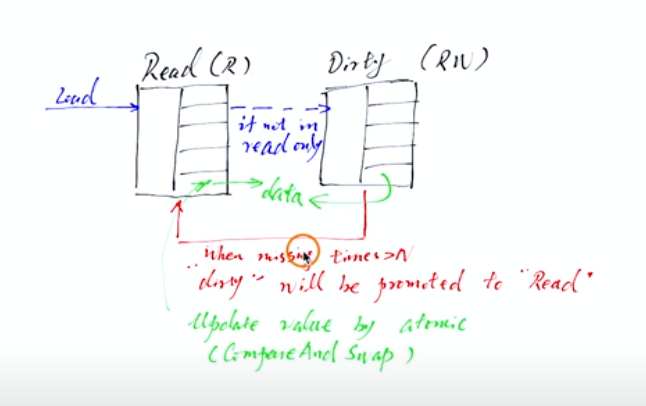 Read (R)
Dirty (RW)
Load
if not in
read only
data
when missing times>N
"dirty" will be promoted to "Read"
Update value by atomic
(CompareAnd Swap)